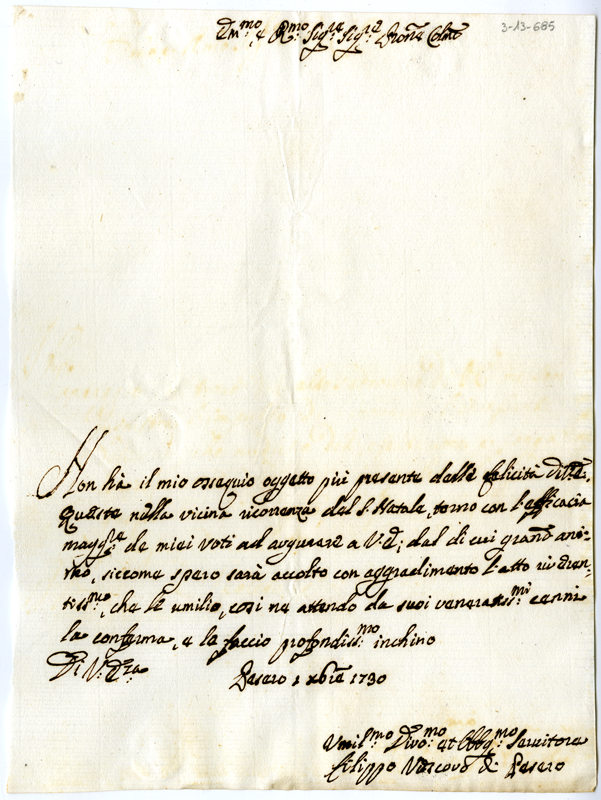 Em.mo e R.mo Sig.re Sig.re Pron̄e Colmō
3-13-685
Non hà il mio ossequio oggetto più presente delle felicità di V. E.;
Queste nella vicina ricorrenza del S. Natale, torno con l'efficacia
magg.re de miei voti ad augurare a V. E.; dal di cui grand' ani-
mo, siccome spero sarà accolto con aggradimento l'atto riveren-
tiss.mo, che le umilio, così ne attendo da suoi veneratiss.mi cenni
la conferma, e le faccio profondiss.mo inchino
Di V. E.za
Pesaro 1 Xbrē 1730
Umil.mo Divo.mo et Obbg.mo Servitore
Filippo Vescovo di Pesaro